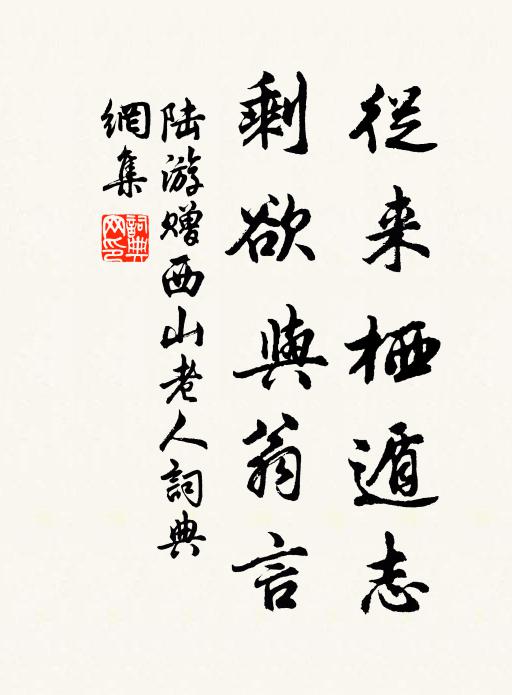 從来栖遁志
剩欲與翁言
陆游赠西山老人詞典
網集
詞典
网印